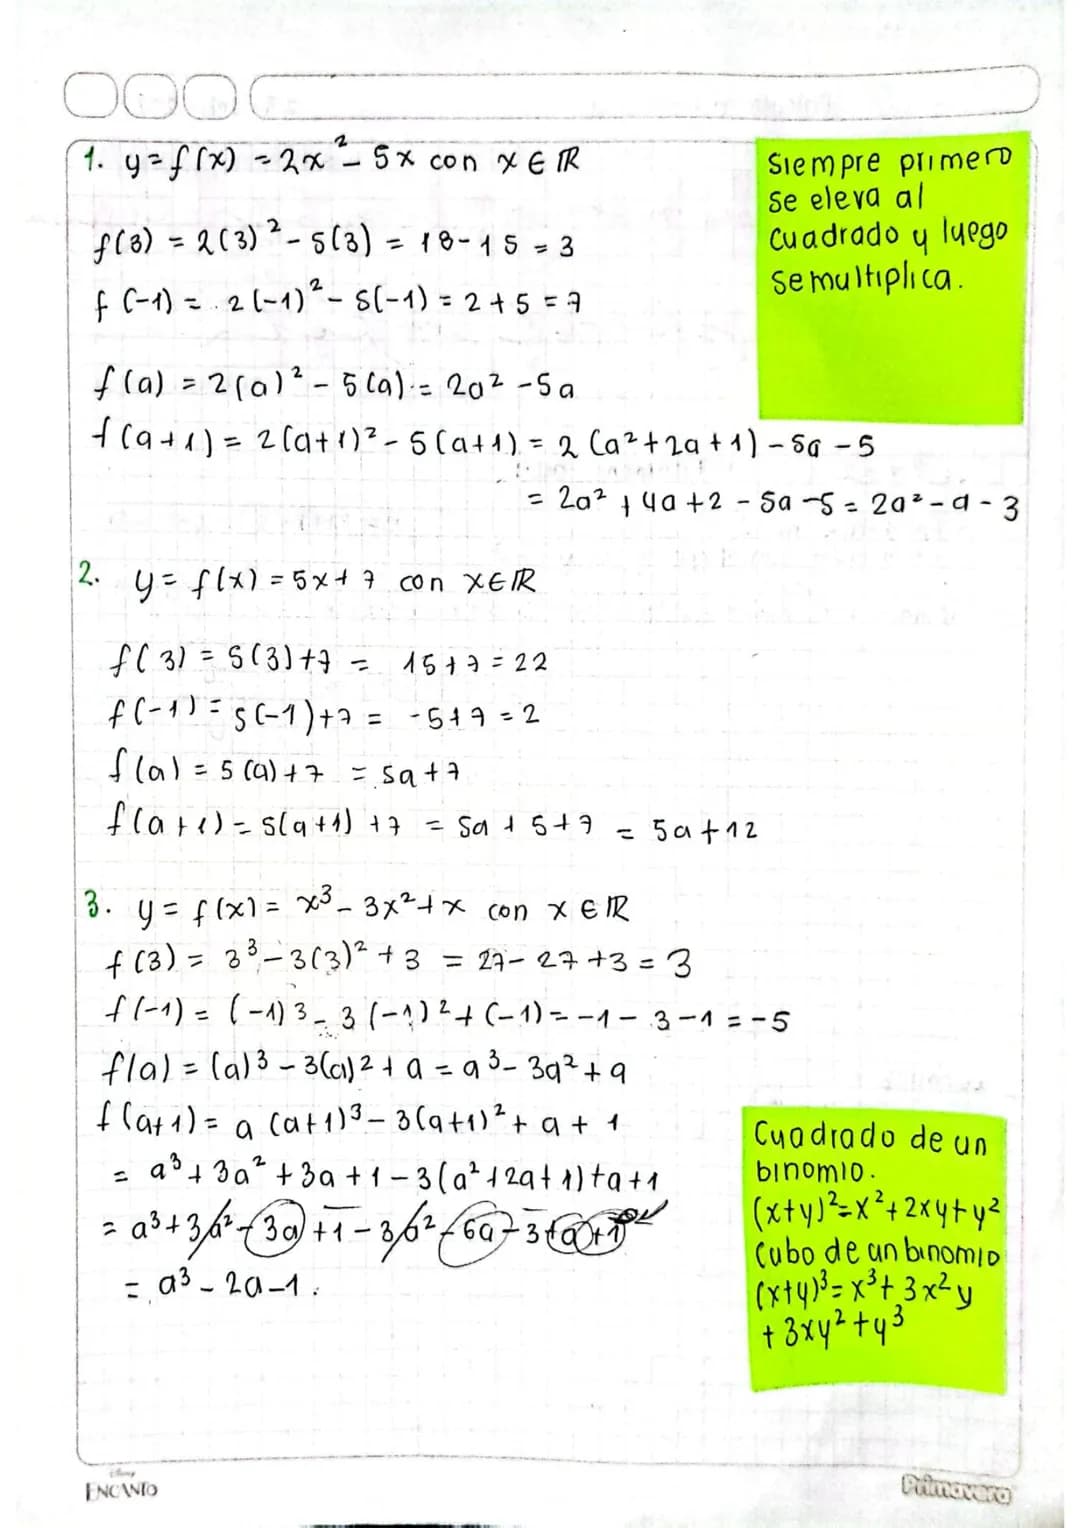 1. y=f(x) = 2x² - 5x con x ∈ ℝ
Siempre primero
se eleva al
cuadrado y luego
se multiplica.
f(3) = 2(3)² - 5(3) = 18-15 = 3
f(-1) = 2(-1)² - 5(-1) = 2+5 = 7
f(a) = 2(a)² - 5(a) = 2a² -5a
f(a+1) = 2(a+1)² - 5(a+1) = 2(a²+2a+1) - 5a - 5
= 2a² + 4a +2 - 5a -5 = 2a² - a - 3
2. y= f(x) = 5x+7 con x∈ℝ
f(3) = 5(3)+7 = 15+7 = 22
f(-1) = 5(-1)+7 = -5+7 = 2
f(a) = 5(a)+7 = 5a+7
f(a+1) = 5(a+1) +7 = 5a + 5+7 = 5a+12
3. y= f(x) = x³ - 3x² + x con x ∈ ℝ
f(3) = 3³ - 3(3)² + 3 = 27- 27 +3 = 3
f(-1) = (-1)3 - 3(-1)2 + (-1) = -1 - 3 -1 = -5
f(a) = (a)3 - 3(a)2 + a = a3 - 3a² + a
f(a+1) = a (a+1)3 - 3(a+1)² + a + 1
= a³ + 3a² + 3a + 1 - 3(a² + 2a+1) + a+1
= a³ + 3a² + 3a + 1 - 3a² - 6a - 3 + a + 1
= a³ - 2a -1.
Cuadrado de un
binomio.
(x+y)²=x²+2xy+y²
Cubo de un binomio
(x+y)³= x³+ 3x²y
+ 3xy² + y³
Disney
ENCANTO
Primavera